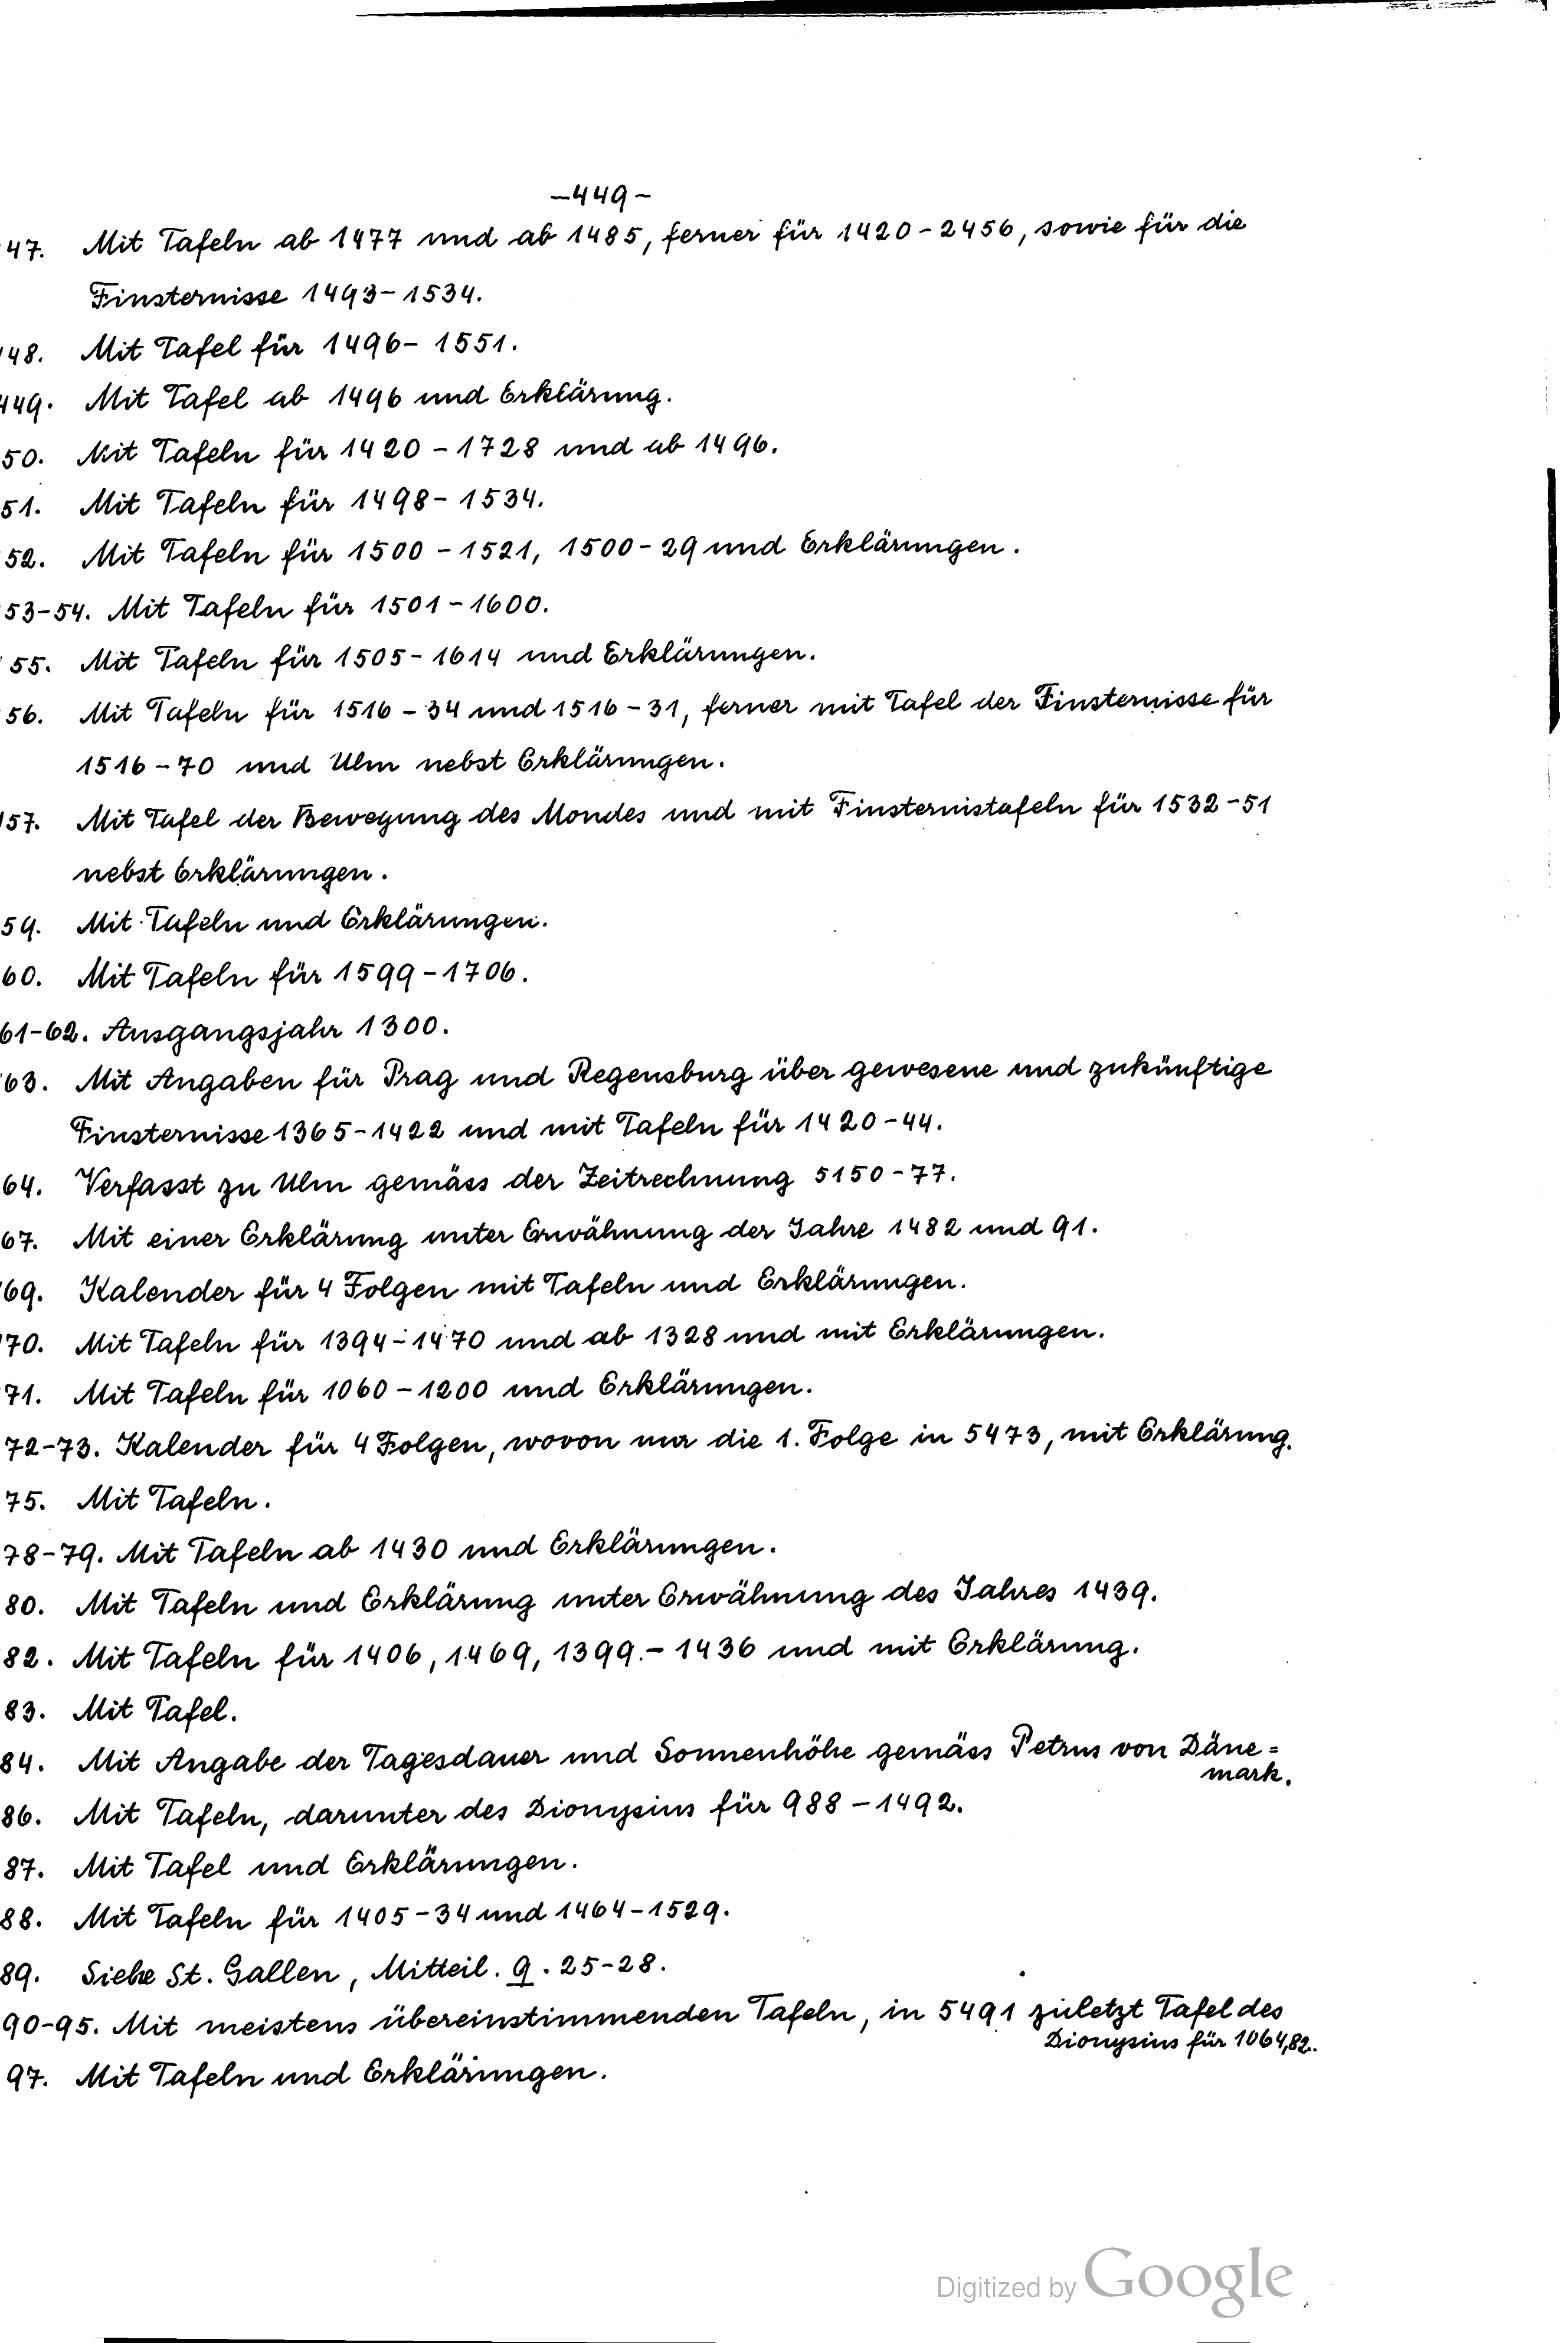 -449-
47. Mit Tafeln ab 1477 und ab 1485, ferner für 1420-2456, sowie für die
Finsternisse 1493-1534.
48. Mit Tafel für 1496-1551.
449. Mit Tafel ab 1496 und Erklärung.
50. Mit Tafeln für 1420-1728 und ab 1496.
51. Mit Tafeln für 1498-1534.
52. Mit Tafeln für 1500-1521, 1500-29 und Erklärungen.
53-54. Mit Tafeln für 1501-1600.
55. Mit Tafeln für 1505-1614 und Erklärungen.
56. Mit Tafeln für 1516-34 und 1516-31, ferner mit Tafel der Finsternisse für
1516-70 und Ulm nebst Erklärungen.
57. Mit Tafel der Bewegung des Mondes und mit Finsternistafeln für 1532-51
nebst Erklärungen.
59. Mit Tafeln und Erklärungen.
60. Mit Tafeln für 1599-1706.
61-62. Ausgangsjahr 1300.
63. Mit Angaben für Prag und Regensburg über gewesene und zukünftige
Finsternisse 1365-1422 und mit Tafeln für 1420-44.
64. Verfasst zu Ulm gemäss der Zeitrechnung 5150-77.
67. Mit einer Erklärung unter Erwähnung der Jahre 1482 und 91.
69. Kalender für 4 Folgen mit Tafeln und Erklärungen.
70. Mit Tafeln für 1394-1470 und ab 1328 und mit Erklärungen.
71. Mit Tafeln für 1060-1200 und Erklärungen.
72-73. Kalender für 4 Folgen, wovon nur die 1. Folge in 5473, mit Erklärung.
75. Mit Tafeln.
78-79. Mit Tafeln ab 1430 und Erklärungen.
80. Mit Tafeln und Erklärung unter Erwähnung des Jahres 1439.
82. Mit Tafeln für 1406, 1469, 1399.-1436 und mit Erklärung.
83. Mit Tafel.
84. Mit Angabe der Tagesdauer und Sonnenhöhe gemäss Petrus von Däne=
mark.
86. Mit Tafeln, darunter des Dionysius für 988-1492.
87. Mit Tafel und Erklärungen.
88. Mit Tafeln für 1405-34 und 1464-1529.
89. Siehe St. Gallen, Mitteil. 9. 25-28.
90-95. Mit meistens übereinstimmenden Tafeln, in 5491 zuletzt Tafel des
Dionysius für 1064,82.
97. Mit Tafeln und Erklärungen.
Digitized by Google